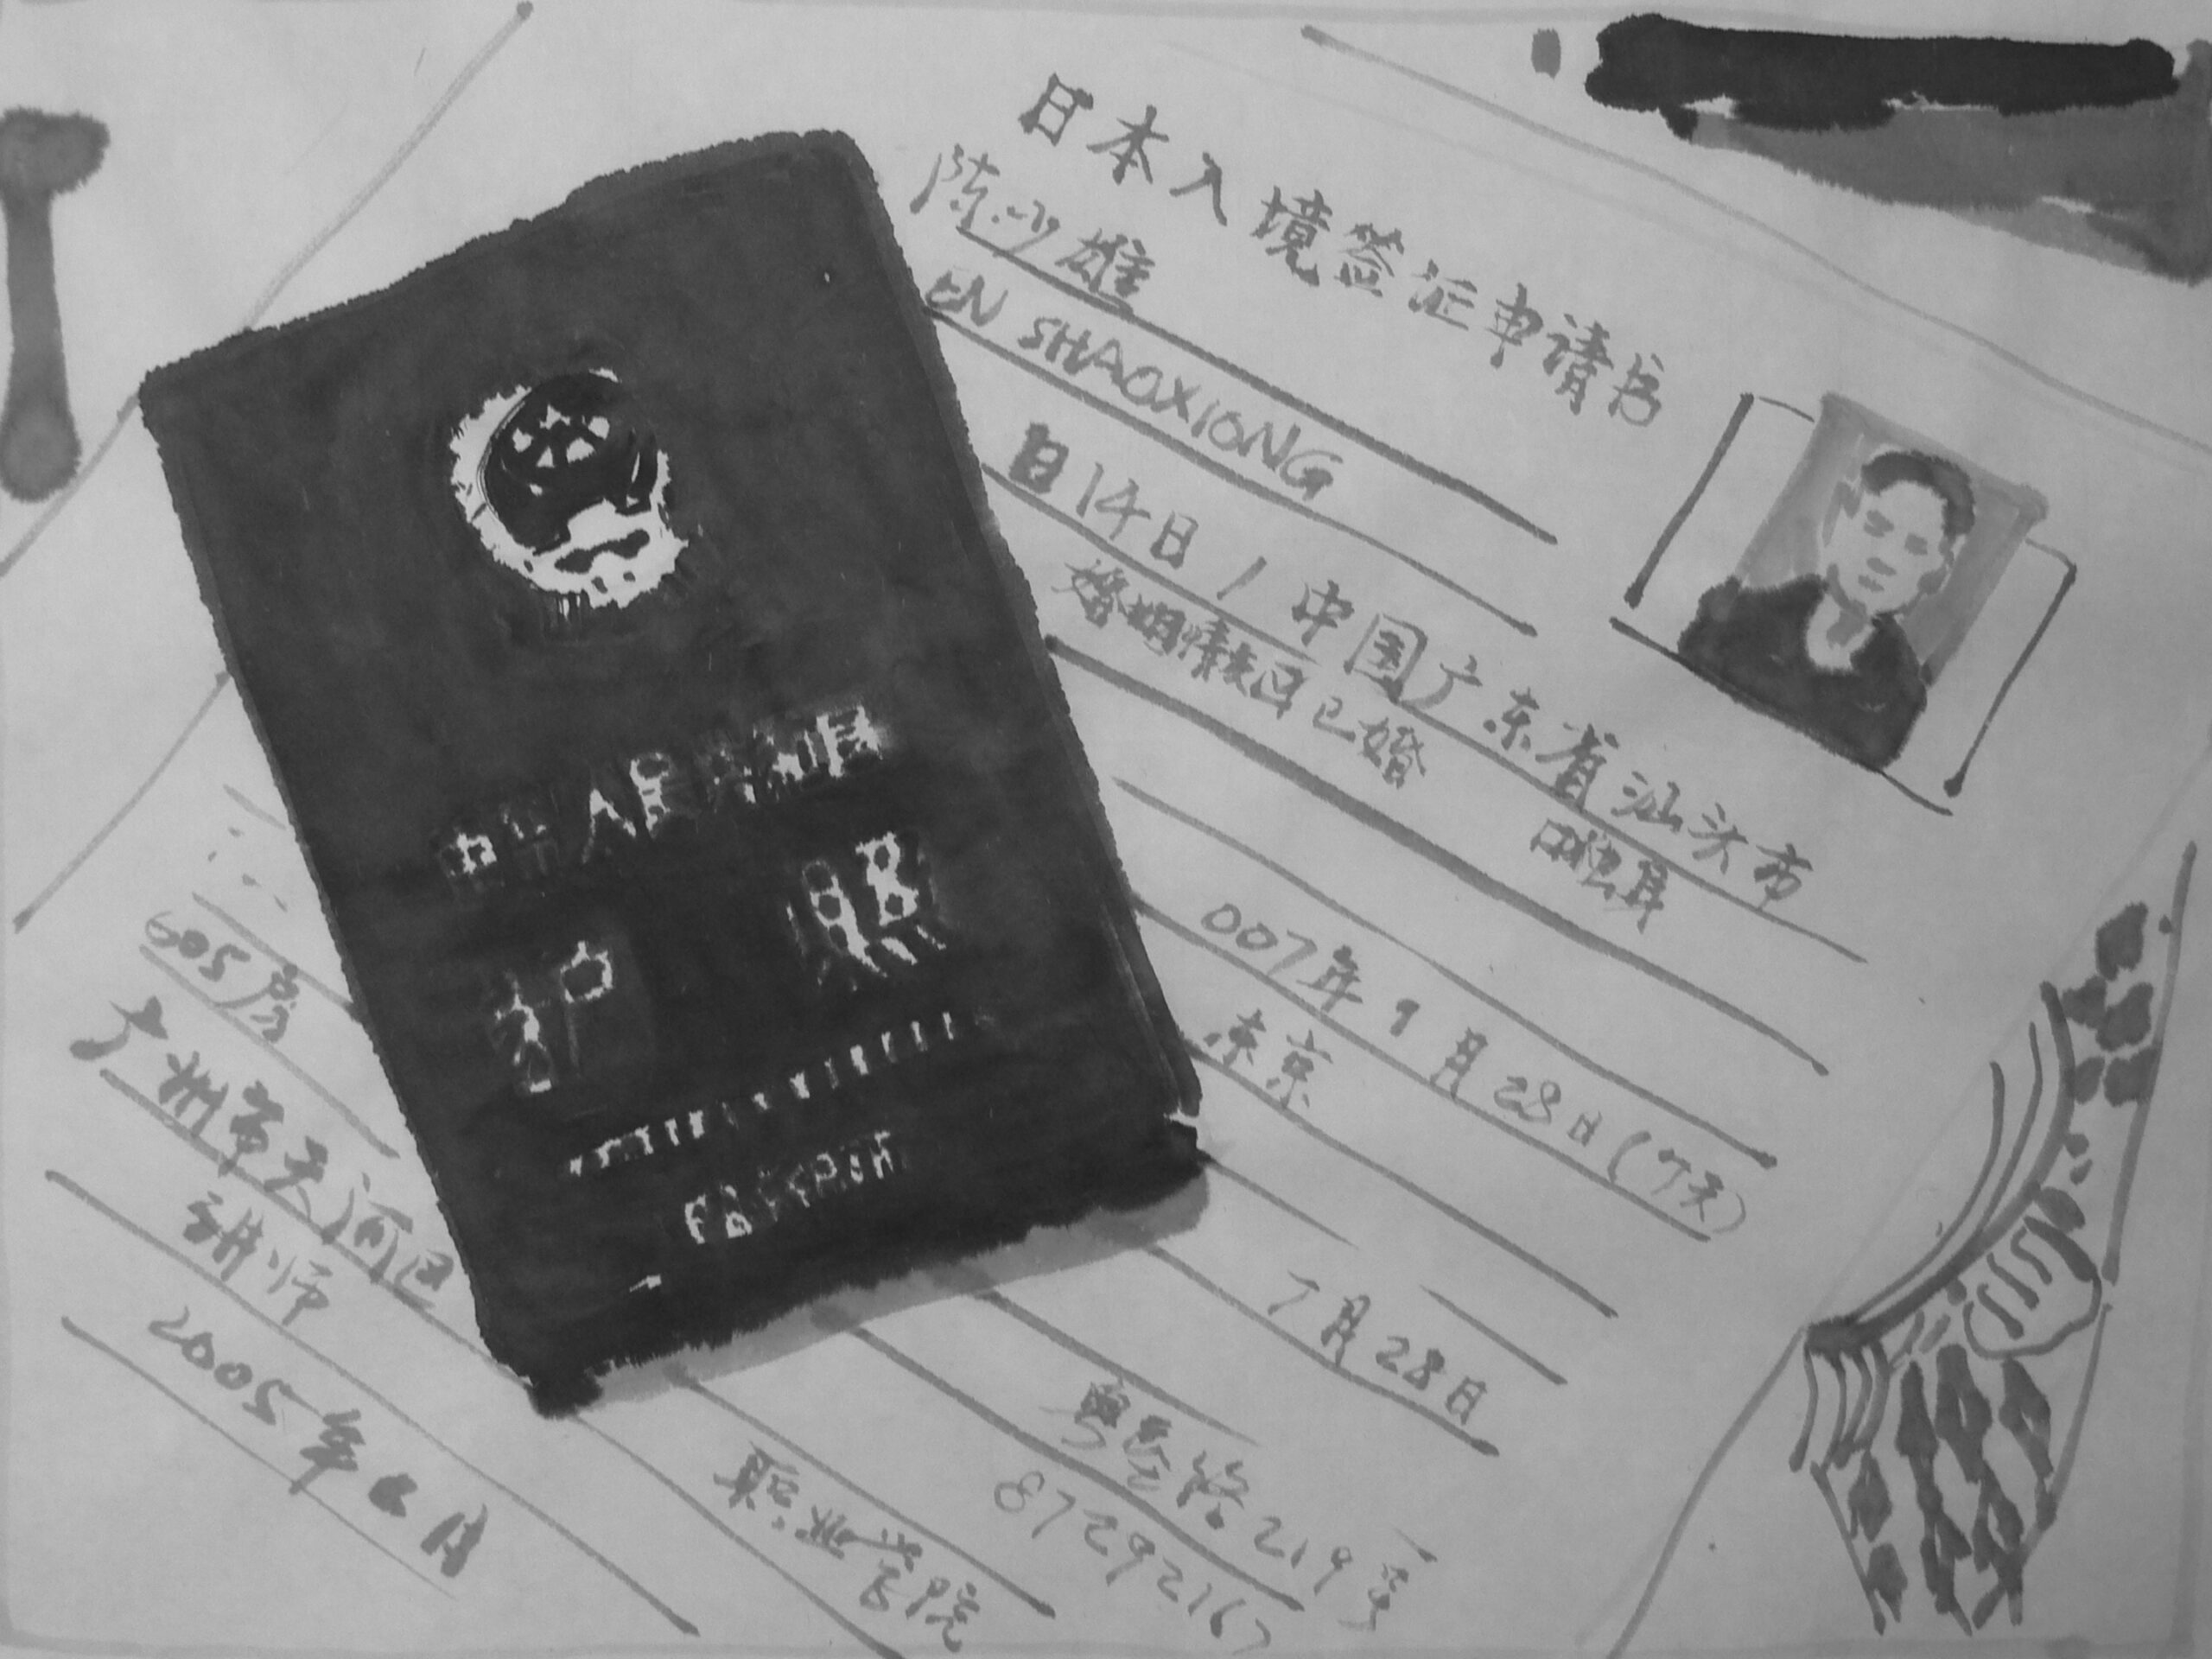 日本入境签证申请书
陈劭雄
EN SHAOXIONG
日14日/中国广东省汕头市
婚姻情况 已婚
007年9月28日(7天)
东京
7月28日
路219号
87292167
职业学院
中华人民共和国
护照
605房
广州市天河区
讲师
2005年6月